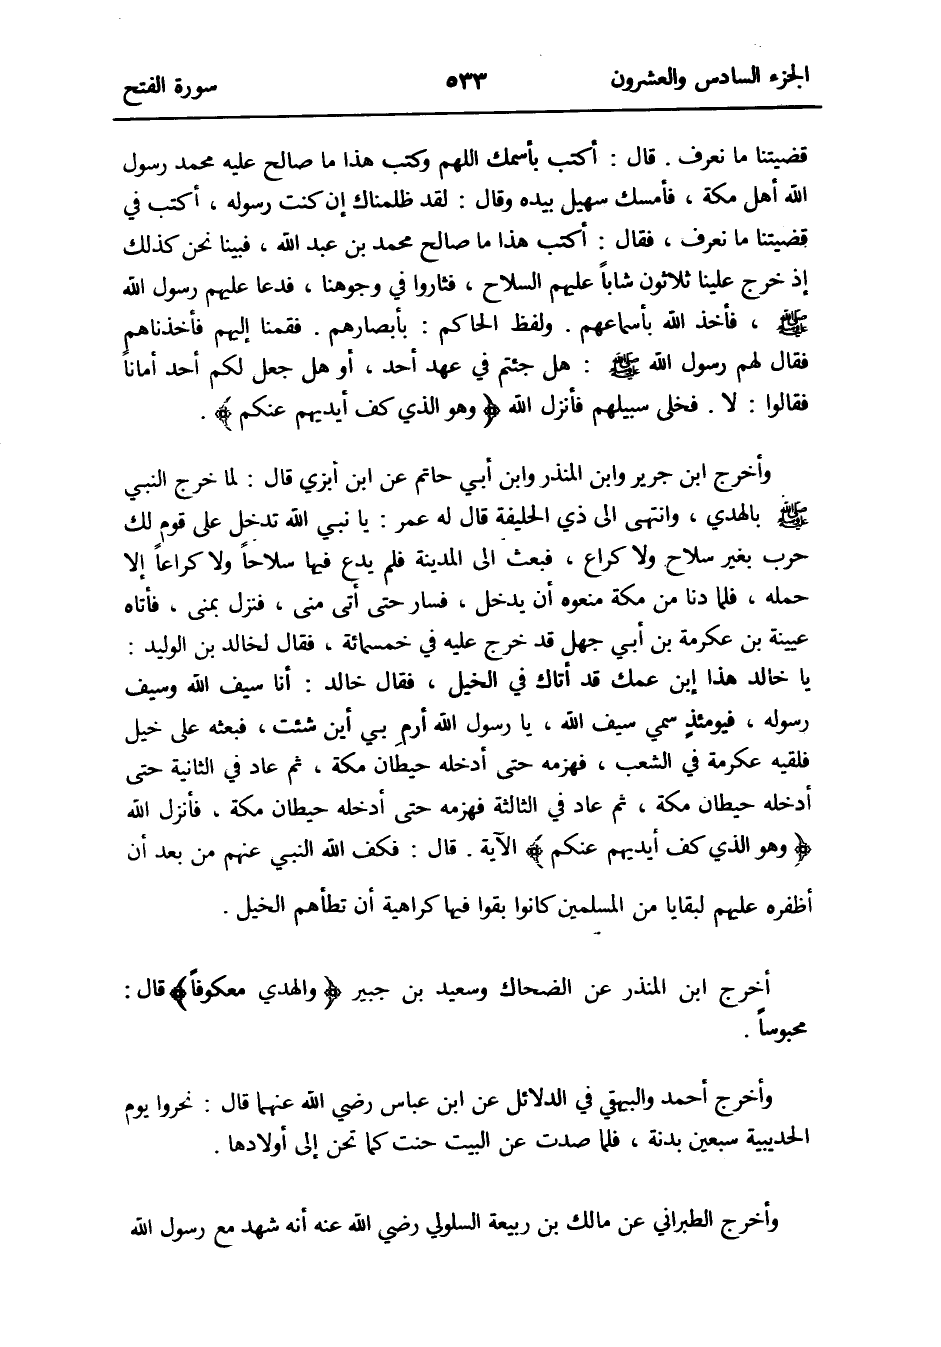 الجزء السادس والعشرون ٥٣٣ سورة الفتح
قضيتنا ما نعرف . قال : أكتب بأسمك اللهم وكتب هذا ما صالح عليه محمد رسول
الله أهل مكة ، فأمسك سهيل بيده وقال : لقد ظلمناك إن كنت رسوله ، أكتب في
قضيتنا ما نعرف ، فقال : أكتب هذا ما صالح محمد بن عبد الله ، فبينا نحن كذلك
إذ خرج علينا ثلاثون شاباً عليهم السلاح ، فثاروا في وجوهنا ، فدعا عليهم رسول الله
ﷺ ، فأخذ الله بأسماعهم . ولفظ الحاكم : بأبصارهم . فقمنا إليهم فأخذناهم
فقال لهم رسول الله ﷺ : هل جئتم في عهد أحد ، أو هل جعل لكم أحد أماناً
فقالوا : لا . فخلى سبيلهم فأنزل الله ﴿ وهو الذي كف أيديهم عنكم ﴾ .
وأخرج ابن جرير وابن المنذر وابن أبي حاتم عن ابن أبزي قال : لما خرج النبي
ﷺ بالهدي ، وانتهى الى ذي الحليفة قال له عمر : يا نبي الله تدخل على قوم لك
حرب بغير سلاح ولا كراع ، فبعث الى المدينة فلم يدع فيها سلاحاً ولا كراعاً إلا
حمله ، فلما دنا من مكة منعوه أن يدخل ، فسار حتى أتى منى ، فنزل بمنى ، فأتاه
عيينة بن عكرمة بن أبي جهل قد خرج عليه في خمسمائة ، فقال لخالد بن الوليد :
يا خالد هذا إبن عمك قد أتاك في الخيل ، فقال خالد : أنا سيف الله وسيف
رسوله ، فيومئذٍ سمي سيف الله ، يا رسول الله أرمِ بي أين شئت ، فبعثه على خيل
فلقيه عكرمة في الشعب ، فهزمه حتى أدخله حيطان مكة ، ثم عاد في الثانية حتى
أدخله حيطان مكة ، ثم عاد في الثالثة فهزمه حتى أدخله حيطان مكة ، فأنزل الله
﴿ وهو الذي كف أيديهم عنكم ﴾ الآية . قال : فكف الله النبي عنهم من بعد أن
أظفره عليهم لبقايا من المسلمين كانوا بقوا فيها كراهية أن تطأهم الخيل .
أخرج ابن المنذر عن الضحاك وسعيد بن جبير ﴿ والهدي معكوفاً ﴾ قال :
محبوساً .
وأخرج أحمد والبيهقي في الدلائل عن ابن عباس رضي الله عنهما قال : نحروا يوم
الحديبية سبعين بدنة ، فلما صدت عن البيت حنت كما تحن إلى أولادها .
وأخرج الطبراني عن مالك بن ربيعة السلولي رضي الله عنه أنه شهد مع رسول الله